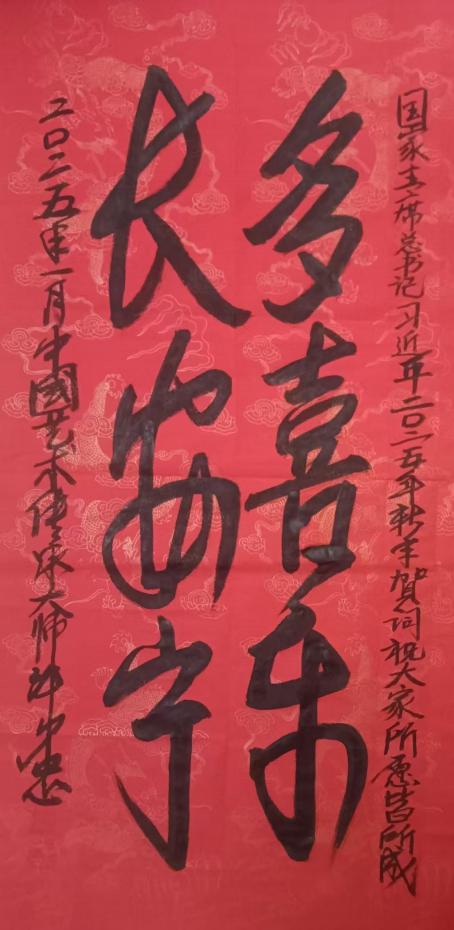 国家主席总书记习近平二〇二五年新年贺词祝大家所愿皆所成
多喜乐
长安宁
二〇二五年一月中國艺术传承大师 忠